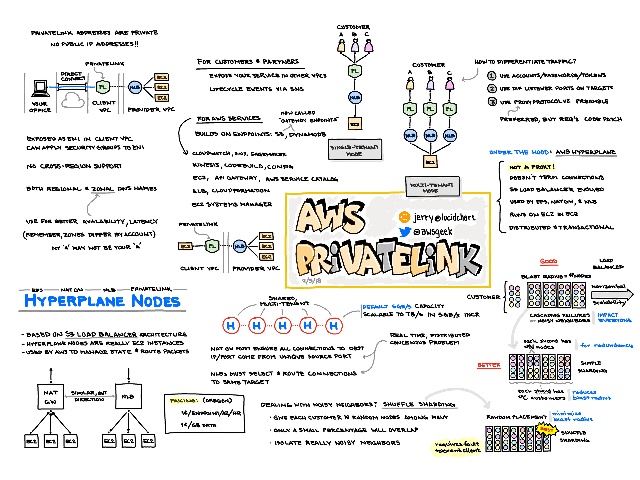 PRIVATELINK ADDRESSES ARE PRIVATE
NO PUBLIC IP ADDRESSES!!
PRIVATELINK
DIRECT
CONNECT
PL
NLB
EC2
EC2
EC2
YOUR
OFFICE
CLIENT
VPC
PROVIDER VPC
EXPOSED AS ENI IN CLIENT VPC
CAN APPLY SECURITY GROUPS TO ENI
NO CROSS-REGION SUPPORT
BOTH REGIONAL & ZONAL DNS NAMES
USE FOR BETTER AVAILABILITY, LATENCY
(REMEMBER, ZONES DIFFER BY ACCOUNT)
MY 'A' MAY NOT BE YOUR 'A'
FOR CUSTOMERS & PARTNERS
EXPOSE YOUR SERVICE IN OTHER VPCS
LIFECYCLE EVENTS VIA SNS
FOR AWS SERVICES
NOW CALLED
"GATEWAY ENDPOINTS"
BUILDS ON ENDPOINTS: S3, DYNAMODB
CLOUDWATCH, SNS, SAGEMAKER
KINESIS, CODEBUILD, CONFIG
EC2, API GATEWAY, AWS SERVICE CATALOG
ELB, CLOUDFORMATION
EC2 SYSTEMS MANAGER
PRIVATELINK
PL
NLB
EC2
EC2
EC2
CLIENT VPC
PROVIDER VPC
CUSTOMER
A B C
PL
NLB
EC2
SINGLE-TENANT
MODE
CUSTOMER
A B C
PL PL PL
NLB NLB NLB
EC2
MULTI-TENANT
MODE
HOW TO DIFFERENTIATE TRAFFIC?
1 USE ACCOUNTS/PASSWORDS/TOKENS
2 USE DIFF LISTENER PORTS ON TARGETS
3 USE PROXY PROTOCOL V2 PREAMBLE
PREFERRED, BUT REQ'S CODE PATCH
UNDER THE HOOD: AWS HYPERPLANE
NOT A PROXY!
DOESN'T TERM CONNECTIONS
S3 LOAD BALANCER EVOLVED
USED BY EFS, NATGW, & NLB
RUNS ON EC2 IN EC2
DISTRIBUTED & TRANSACTIONAL
AWS
PRIVATELINK
jerry@lucidchart
@awsgeek
9/9/18
EFS NATGW NLB PRIVATELINK
HYPERPLANE NODES
- BASED ON S3 LOAD BALANCER ARCHITECTURE
- HYPERPLANE NODES ARE REALLY EC2 INSTANCES
- USED BY AWS TO MANAGE STATE & ROUTE PACKETS
NAT
GW
SIMILAR, DIFF
DIRECTION
NLB
EC2 EC2 EC2
EC2 EC2 EC2
PRICING: (OREGON)
1¢/ENDPOINT/AZ/HR
1¢/GB DATA
SHARED,
MULTI-TENANT
H H H H H
DEFAULT 5GB/S CAPACITY
SCALABLE TO TB/S IN 5GB/S INCR
NAT GW MUST ENSURE ALL CONNECTIONS TO DEST
IP/PORT COME FROM UNIQUE SOURCE PORT
NLBS MUST SELECT & ROUTE CONNECTIONS
TO SAME TARGET
REAL TIME, DISTRIBUTED
CONSENSUS PROBLEM
DEALING WITH NOISY NEIGHBORS? SHUFFLE SHARDING
· GIVE EACH CUSTOMER N RANDOM NODES AMONG MANY
· ONLY A SMALL PERCENTAGE WILL OVERLAP
· ISOLATE REALLY NOISY NEIGHBORS
GOOD
BLAST RADIUS = #NODES
LOAD
BALANCER
CUSTOMER
HORIZONTAL
SCALABILITY
CASCADING FAILURES
NOISY NEIGHBORS
IMPACT
EVERYONE
BETTER
each shard has
nodes
for redundancy
SIMPLE
SHARDING
each shard has
customers
reduces
blast radius
RANDOM PLACEMENT
minimize
blast radius
BEST
SHUFFLE
SHARDING
requires fault
tolerant client